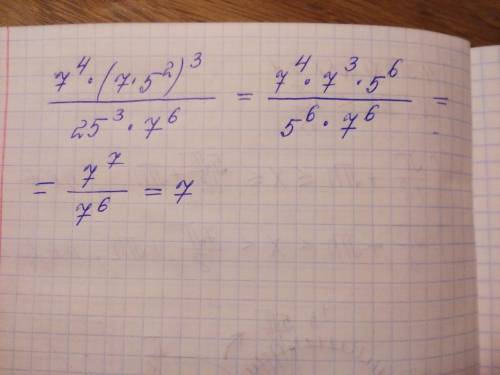 (7⁴·(7·5²)³)/(25³·7⁶) = (7⁴·7³·5⁶)/(5⁶·7⁶) =
= 7⁷/7⁶ = 7